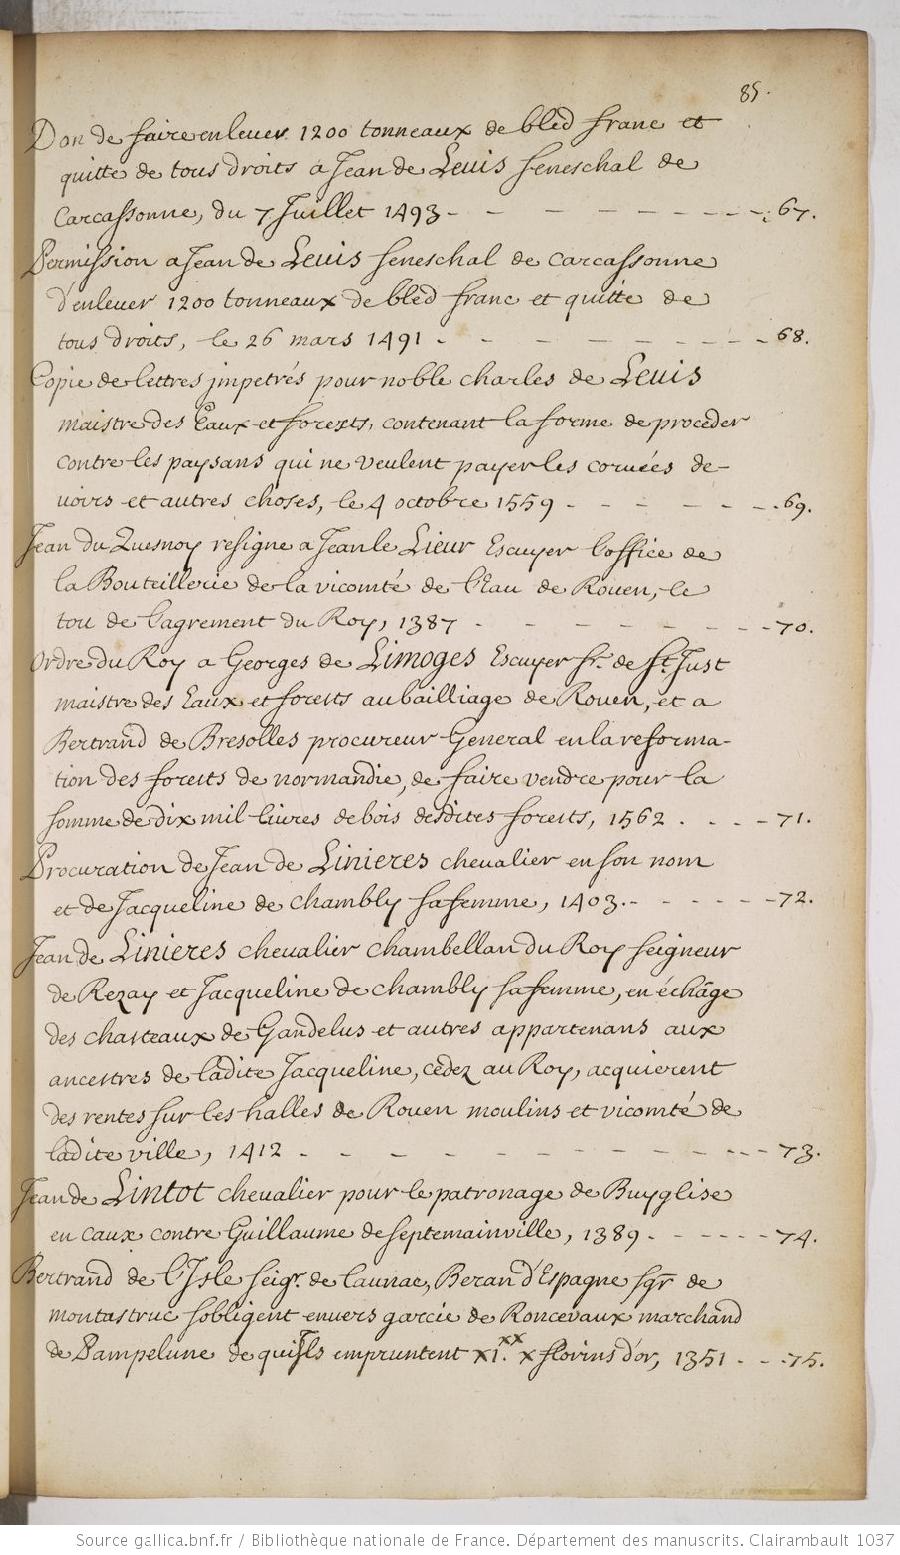 85.
Don de faire enlever 1200 tonneaux de bled franc et
quitte de tous droits a Jean de Levis seneschal de
Carcassonne, du 7 Juillet 1493 - - - - - - - - - 67.
Permission a Jean de Levis seneschal de Carcassonne
d'enlever 1200 tonneaux de bled franc et quitte de
tous droits, le 26 mars 1491 - - - - - - - - - 68.
Copie de lettres jmpetrés pour noble charles de Levis
maistre des Eaux et forests, contenant la forme de proceder
contre les paysans qui ne veulent payer les corvées de-
voirs et autres choses, le 4 octobre 1559 - - - - - - - 69.
Jean du Quesnoy resigne a Jean le Lieur Escuyer l'office de
la Bouteillerie de la vicomté de l'Eau de Rouen, le
tou de l'agrement du Roy, 1387 - - - - - - - - 70.
Ordre du Roy a Georges de Limoges Escuyer Sr. de St. Just
maistre des Eaux et forests au bailliage de Rouen, et a
Bertrand de Bresolles procureur General en la reforma-
tion des forests de normandie, de faire vendre pour la
somme de dix mil livres de bois desdites forests, 1562 . - - - 71.
Procuration de Jean de Linieres chevalier en son nom
et de Jacqueline de Chambly sa femme, 1403. - - - - - - 72.
Jean de Linieres chevalier chambellan du Roy seigneur
de Rezay et Jacqueline de chambly sa femme, en échãge
des chasteaux de Gandelus et autres appartenans aux
ancestres de ladite Jacqueline, cedez au Roy, acquierent
des rentes sur les halles de Rouen moulins et vicomté de
ladite ville, 1412 - - - - - - - - - - - 73.
Jean de Lintot chevalier pour le patronage de Buyglise
en caux contre Guillaume de Septemainville, 1389 - - - - - - 74.
Bertrand de l'Isle seigr. de Launac, Beran d'Espagne sgr de
montastruc sobligent envers garcie de Roncevaux marchand
de Pampelune de quils empruntent xi.xx x florins d'or, 1351 - - - 75.
Source gallica.bnf.fr / Bibliothèque nationale de France. Département des manuscrits. Clairambault 1037